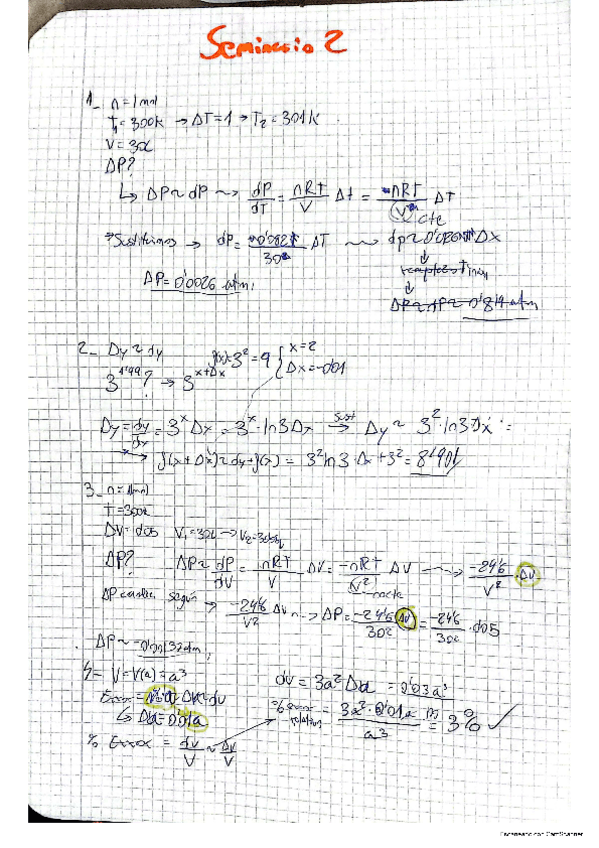 Seminario 2
1_ n=1mol
T₁=300k → ΔT=1 → T₂=301k.
V=30l
ΔP?
↳ ΔP≈dP ⇝ dP/dT = nRT/V Δt = nRT/V ΔT
cte
Sustituimos → dP = 0'082/30 ΔT
ΔP=0'0026 atm.
2_ Dy≈dy
3^1'99? → 3^(x+Dx)
3²=9 { x=2
Dx=-0'01
Dy=dy/dx=3ˣDx=3ˣ·ln3Dx → Sust Δy≈ 3²·ln3·Dx =
f(x+Dx)≈dy+f(x) = 3²ln3·Δx+3²=8'901
3_ n=1mol
T=300k
ΔV=0'05 V₁=30l →V₂=30'05l
ΔP? ΔP≈dP/dV = nRT/V ΔV = -nRT/V² ΔV ⇝ -24'6/V² ·ΔV
no cte
ΔP cambia según → -24'6/V² ΔV → ΔP=-24'6/30² ΔV = -24'6/30² ·0'05
ΔP≈-0'00132atm,
V=V(a)=a³
dV=3a²Da=0'03a³
Da=0'01a
% Error relativo = 3a²·0'01a/a³ = 3% ✓
% Error = dV/V ≈ ΔV/V
Escaneado con CamScanner